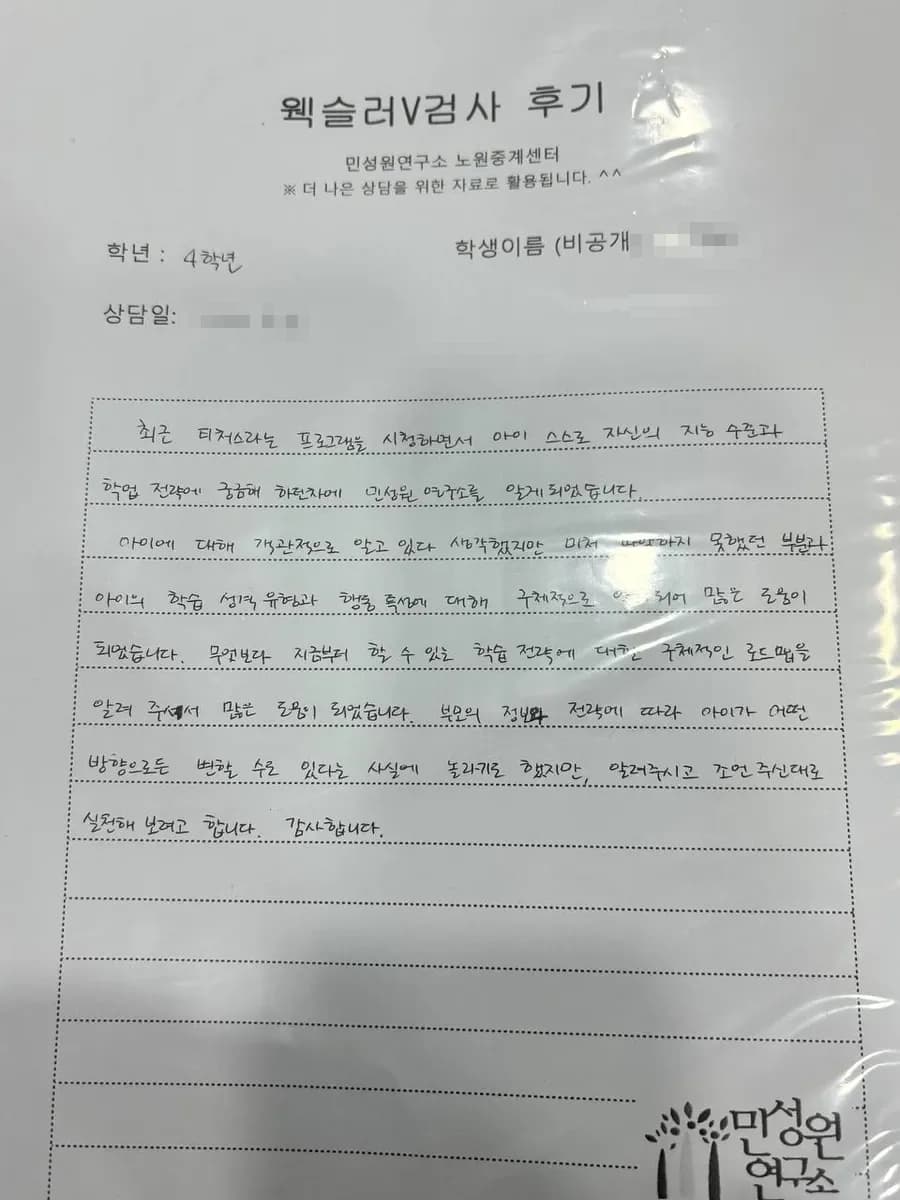 웩슬러V검사 후기
민성원연구소 노원중계센터
※ 더 나은 상담을 위한 자료로 활용됩니다. ^^
학년 : 4학년
학생이름 (비공개
상담일:
최근 티처스라는 프로그램을 시청하면서 아이 스스로 자신의 지능 수준과
학업 전략에 궁금해 하던차에 민성원 연구소를 알게 되었습니다.
아이에 대해 객관적으로 알고 있다 생각했지만 미처 못했던 부분과
아이의 학습 성격 유형과 행동 특성에 대해 구체적으로 되어 많은 도움이
되었습니다. 무엇보다 지금부터 할 수 있는 학습 전략에 대한 구체적인 로드맵을
알려 주셔서 많은 도움이 되었습니다. 부모의 전략에 따라 아이가 어떤
방향으로든 변할 수도 있다는 사실에 놀라기도 했지만, 알려주시고 조언 주신대로
실천해 보려고 합니다. 감사합니다.
민성원
연구소